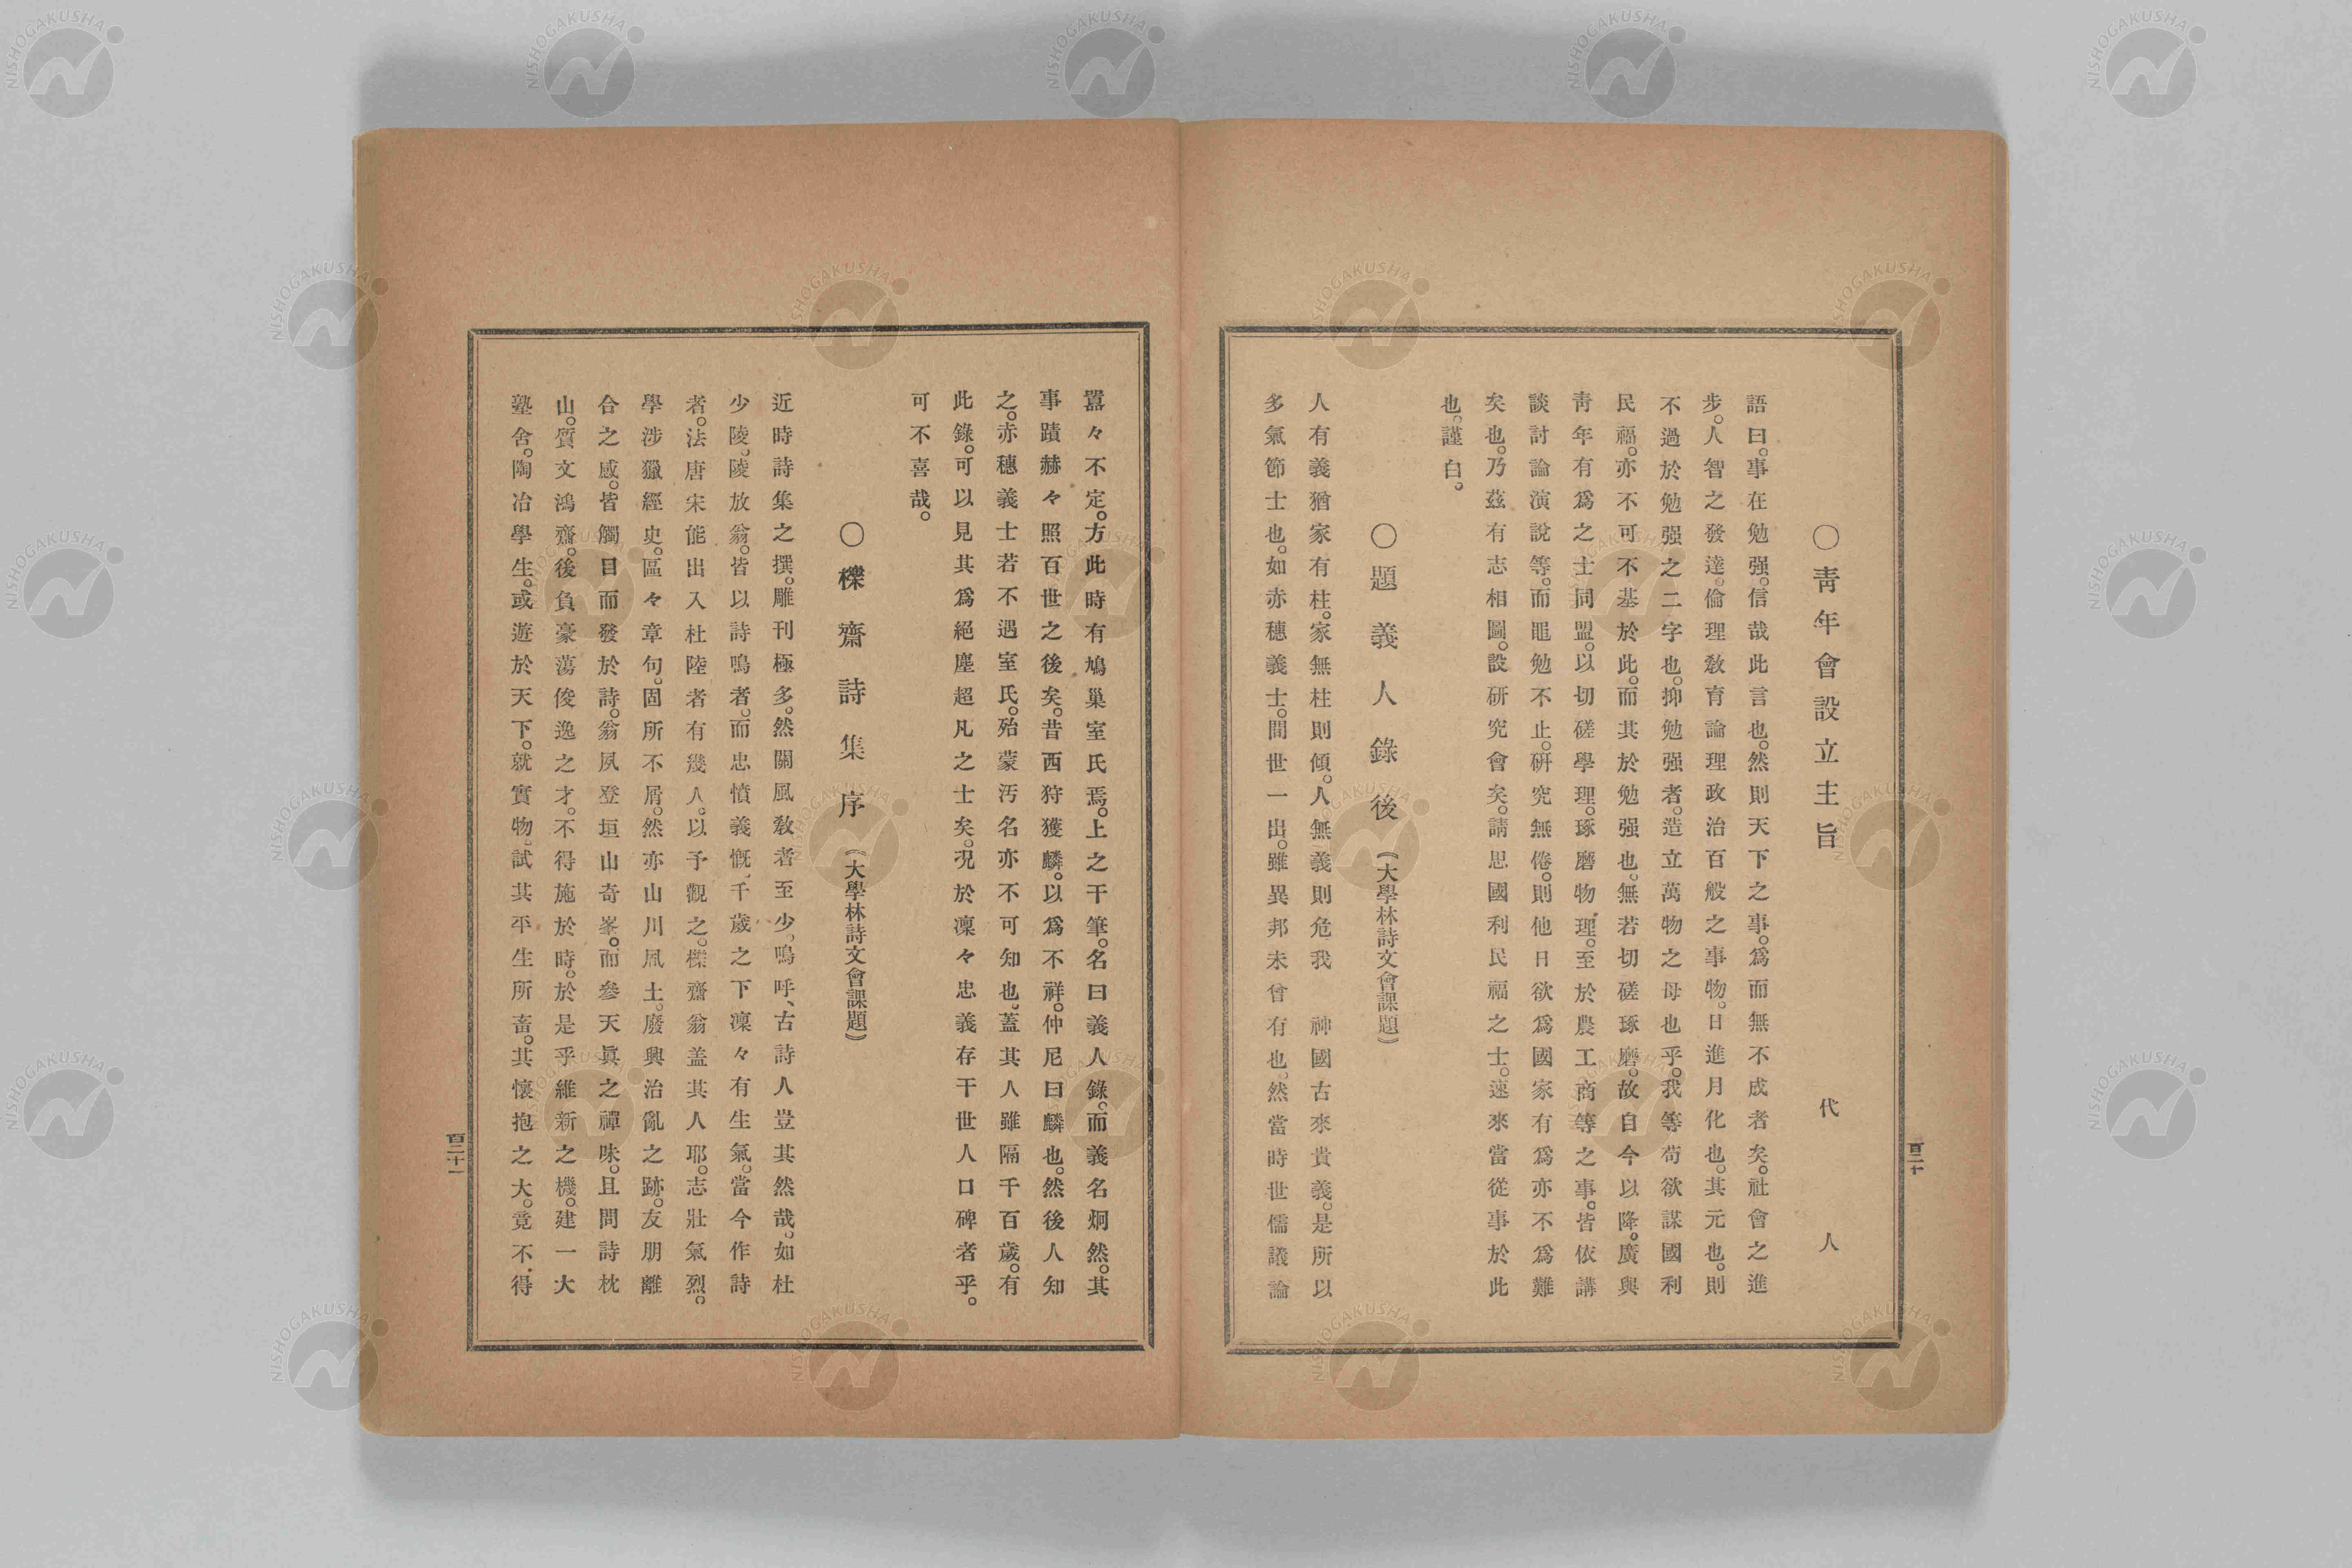 ○靑年會設立主旨
代人
語曰。事在勉强。信哉此言也。然則天下之事。爲而無不成者矣。社會之進
步。人智之發達。倫理敎育論理政治百般之事物。日進月化也。其元也。則
不過於勉强之二字也。抑勉强者。造立萬物之母也乎。我等苟欲謀國利
民福。亦不可不基於此。而其於勉强也。無若切磋琢磨。故自今以降。廣與
靑年有爲之士同盟。以切磋學理。琢磨物理。至於農工商等之事。皆依講
談討論演說等。而黽勉不止。硏究無倦。則他日欲爲國家有爲亦不爲難
矣也。乃茲有志相圖。設硏究會矣。請思國利民福之士。速來當從事於此
也。謹白。
○題義人錄後(大學林詩文會課題)
人有義猶家有柱。家無柱則傾。人無義則危我 神國古來貴義。是所以
多氣節士也。如赤穗義士。間世一出。雖異邦未曾有也。然當時世儒議論
百二十
囂々不定。方此時有鳩巢室氏焉。上之干筆。名曰義人錄。而義名炯然。其
事蹟赫々照百世之後矣。昔西狩獲麟。以爲不祥。仲尼曰麟也。然後人知
之。赤穗義士若不遇室氏。殆蒙汚名亦不可知也。蓋其人雖隔千百歲。有
此錄。可以見其爲絕塵超凡之士矣。况於凜々忠義存干世人口碑者乎。
可不喜哉。
○櫟齋詩集序(大學林詩文會課題)
近時詩集之撰。雕刊極多。然關風敎者至少。嗚呼、古詩人豈其然哉。如杜
少陵。陵放翁。皆以詩鳴者。而忠憤義慨、千歲之下凜々有生氣。當今作詩
者。法唐宋能出入杜陸者有幾人。以予觀之。櫟齋翁盖其人耶。志壯氣烈。
學涉獵經史。區々章句。固所不屑。然亦山川風土。廢興治亂之跡。友朋離
合之感。皆觸目而發於詩。翁夙登垣山奇峯。而參天眞之禪味。且問詩枕
山。質文鴻齋。後負豪蕩俊逸之才。不得施於時。於是乎維新之機。建一大
塾舍。陶冶學生。或遊於天下。就實物。試其平生所畜。其懷抱之大。竟不得
百二十一